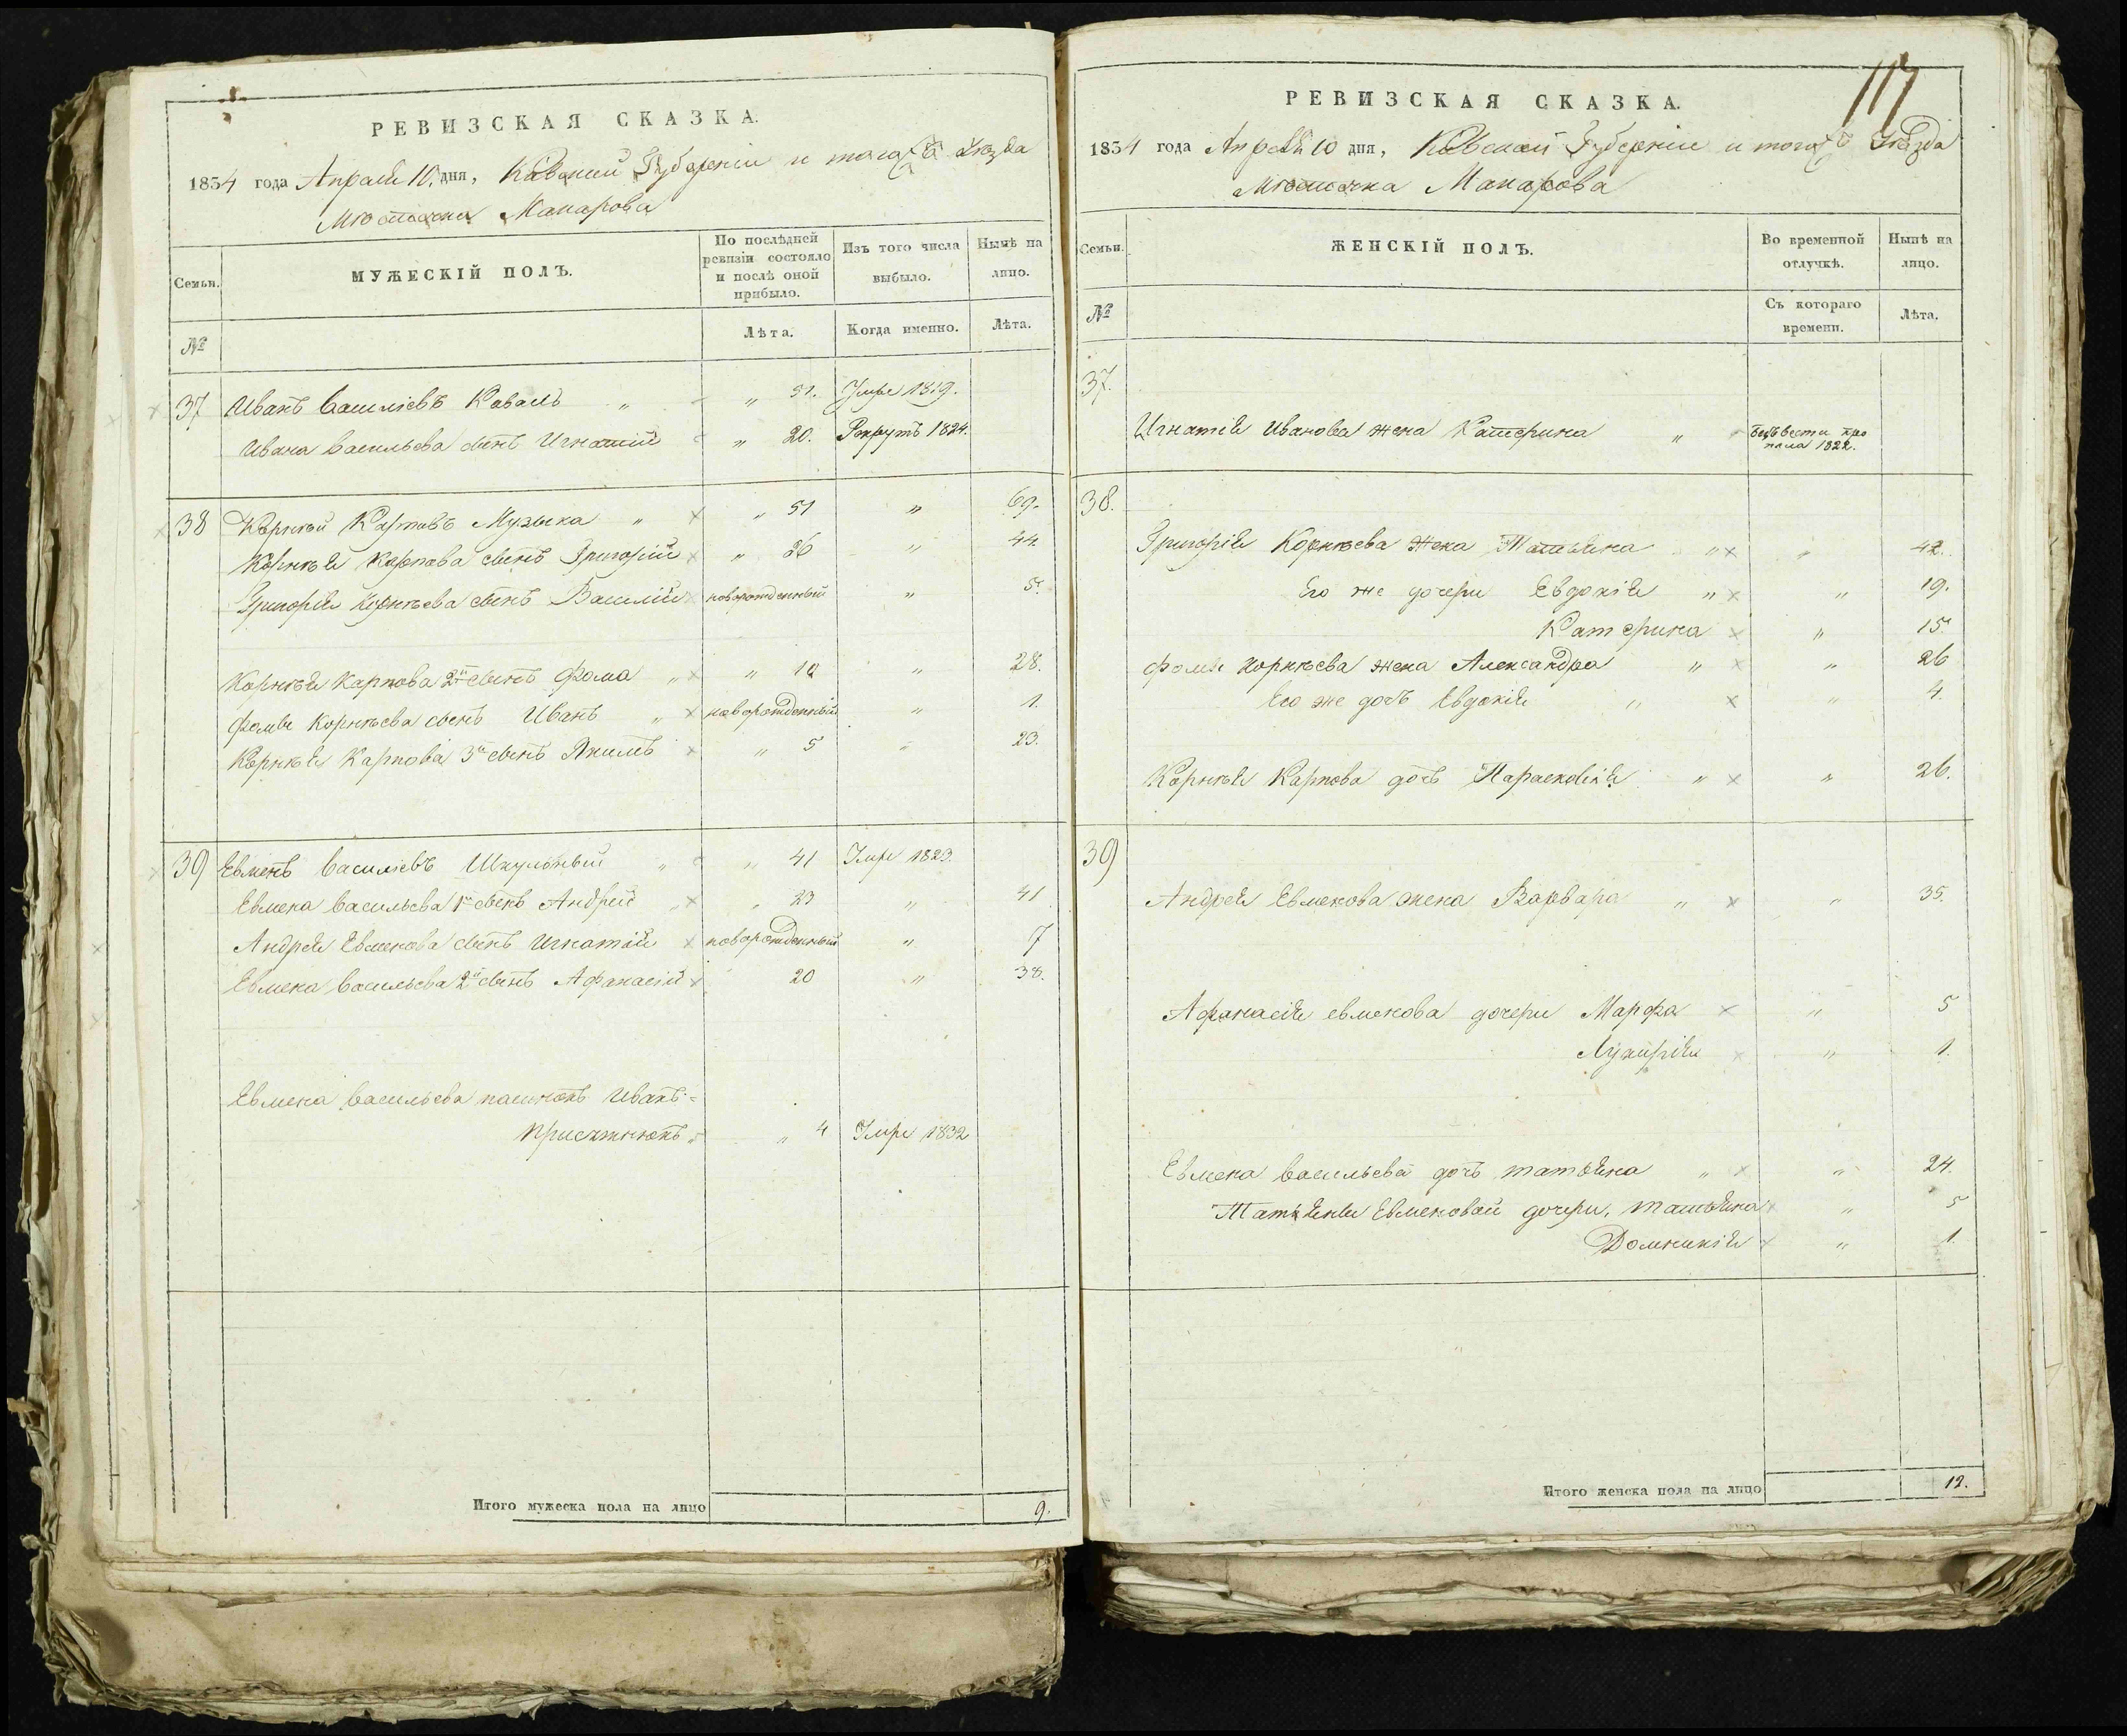 РЕВИЗСКАЯ СКАЗКА.
1834 года Апреля 10 дня, Киевской Губернии и тогожъ уѣзда
Мѣстечка Макарова
Семьи.
МУЖЕСКІЙ ПОЛЪ.
По послѣдней ревизіи состояло и послѣ оной прибыло.
Изъ того числа выбыло.
Нынѣ на лицо.
№
Лѣта.
Когда именно.
Лѣта.
37 Иванъ Василіевъ Коваль " " 51. Умре 1819.
Ивана Васильева сынъ Игнатій " 20. Рекрутъ 1824.
38 Корнѣй Карповъ Музыка " " 51 " 69.
Корнѣя Карпова сынъ Григорій " 26 " 44.
Григорія Корнѣева сынъ Василій новорожденный " 5.
Корнѣя Карпова 2й сынъ Фома " " 10 " 28.
Фомы Корнѣева сынъ Иванъ " новорожденный " 1.
Корнѣя Карпова 3й сынъ Якимъ " 5 " 23.
39 Евменъ Василіевъ Школьный " " 41 Умре 1823.
Евмена Васильева 1й сынъ Андрей " " 23 " 41
Андрея Евменова сынъ Игнатій новорожденный " 7
Евмена Васильева 2й сынъ Афанасій 20 " 38.
Евмена Васильева пасынокъ Иванъ
" 4 Умре 1832
Итого мужеска пола на лицо 9.
117
РЕВИЗСКАЯ СКАЗКА.
1834 года Апреля 10 дня, Киевской Губерніи и тогожъ Уѣзда
Мѣстечка Макарова
Семьи.
ЖЕНСКІЙ ПОЛЪ.
Во временной отлучкѣ.
Нынѣ на лицо.
№
Съ котораго времени.
Лѣта.
37.
Игнатія Иванова жена Катерина " безъ вести про
пала 1822.
38.
Григорія Корнѣева жена Татьяна " " 42.
Его же дочери Евдокія " " 19.
Катерина " 15.
Фомы Корнѣева жена Александра " " 26
Его же дочь Евдокія " " 4.
Корнѣя Карпова дочь Параскевія " " 26.
39
Андрея Евменова жена Варвара " " 35.
Афанасія Евменова дочери Марфа " 5
Лукирія " 1.
Евмена Васильева дочь Татьяна " " 24.
Татьяны Евменовой дочери, Татьяна " 5
Домникія " 1.
Итого женска пола на лицо 12.